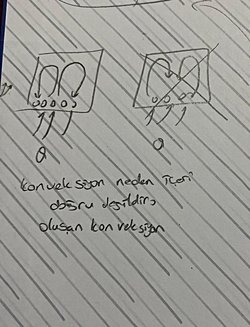 Q
Q
konveksiyon neden içeri
doğru değildir?
oluşan konveksiyon